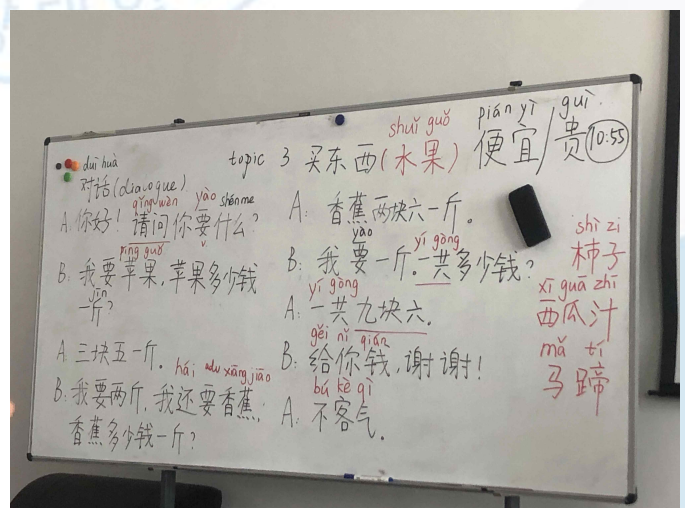 shuǐ guǒ pián yì guì
topic 3 买东西(水果) 便宜/贵 10:55
duì huà
对话(dialogue)
qǐng wèn yào shénme
A: 你好！请问你要什么？
píng guǒ
B: 我要苹果，苹果多少钱
jīn
一斤？
A 三块五一斤。
hái xāng jiāo
B: 我要两斤，我还要香蕉，
香蕉多少钱一斤？
A: 香蕉两块六一斤。
yào yí gòng
B: 我要一斤。一共多少钱？
yí gòng
A: 一共九块六。
gěi nǐ qián
B: 给你钱，谢谢！
bú kè qì
A: 不客气。
shì zi
柿子
xī guā zhī
西瓜汁
mǎ tí
马蹄